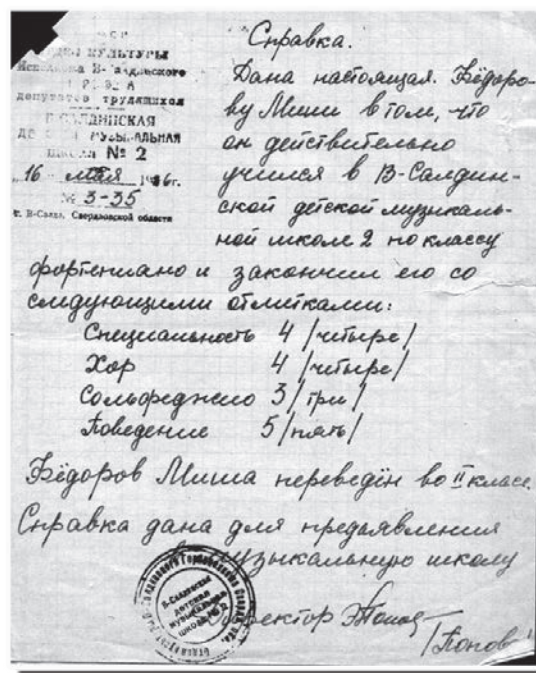 Справка.
КУЛЬТУРЫ
депутатов трудящихся
МУЗЫКАЛЬНАЯ
№ 2
16 мая
№ 3-35
г. В-Салда, Свердловской области
Дана настоящая. Фёдоро-
ву Миши в том, что
он действительно
учился в В-Салдин-
ской детской музыкаль-
ной школе 2 по классу
фортепиано и закончил его со
следующими отметками:
Специальность 4 /четыре/
Хор 4 /четыре/
Сольфеджио 3 /три/
Поведение 5 /пять/
Фёдоров Миша переведён во II класс.
Справка дана для предъявления
музыкальную школу
В-Салдинская
детская
музыкальная
школа
директор
/Попов/